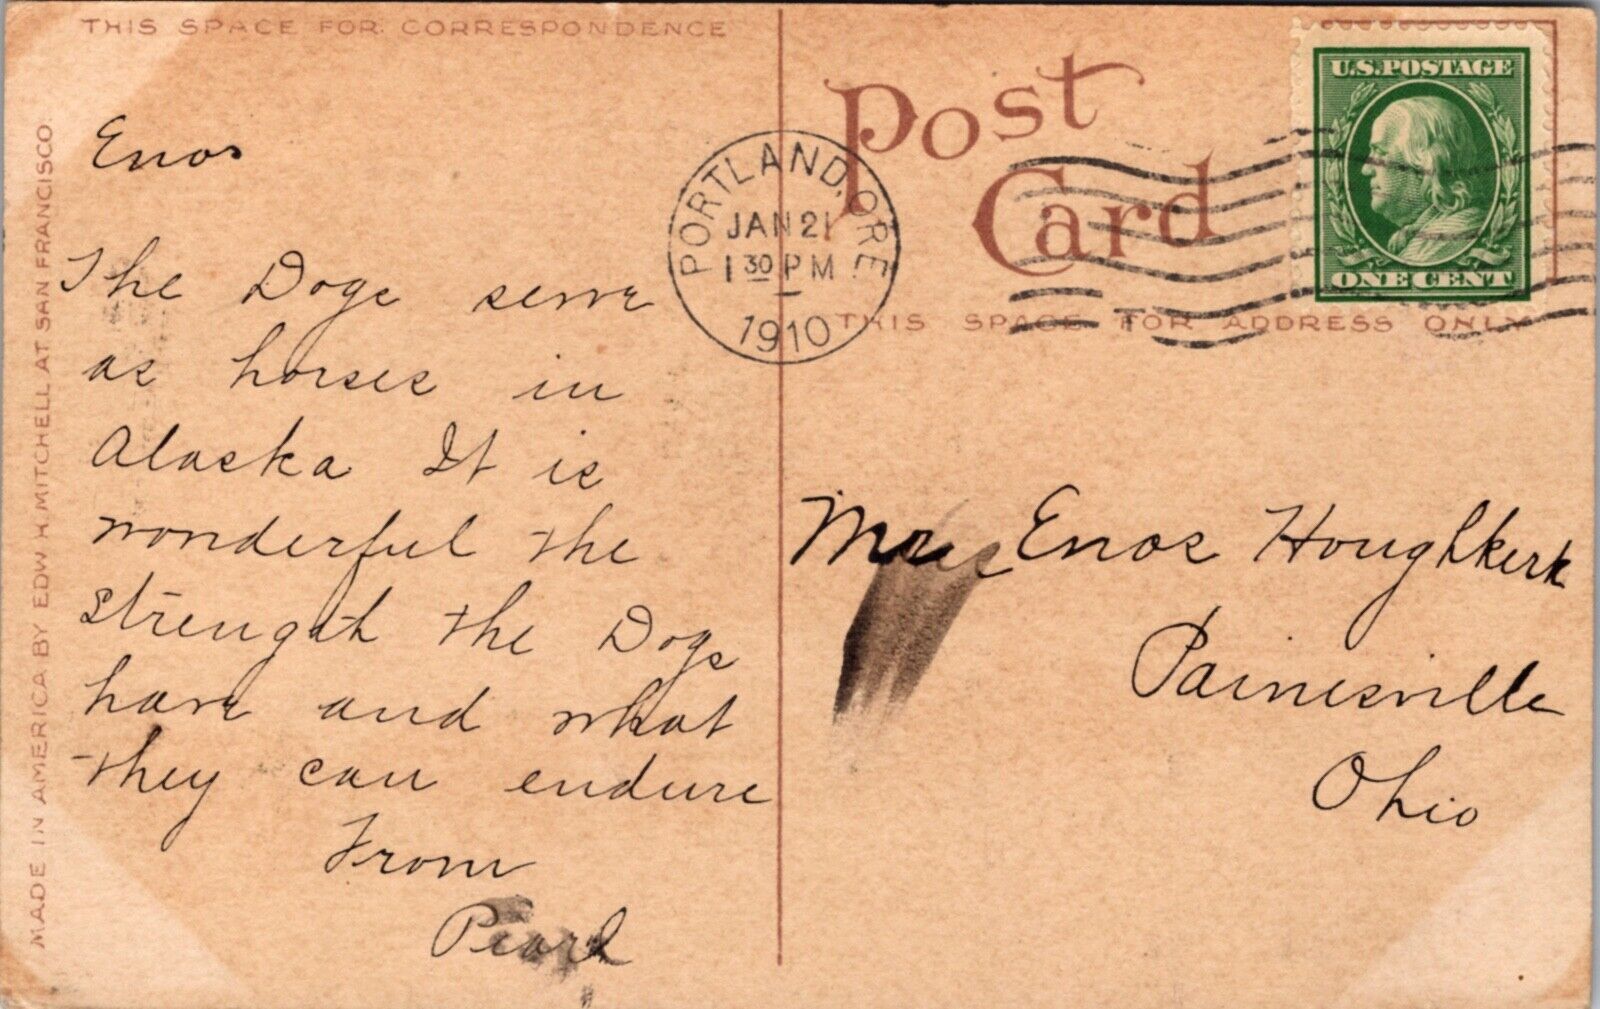 THIS SPACE FOR CORRESPONDENCE
Enos
The Dogs serve
as horses in
Alaska It is
wonderful the
strength the Dogs
have and what
they can endure
From
Pearl
MADE IN AMERICA BY EDW H. MITCHELL AT SAN FRANCISCO.
Post
Card
PORTLAND, ORE.
JAN 21
1 30 PM
1910
U.S. POSTAGE
ONE CENT
THIS SPACE FOR ADDRESS ONLY
Mr Enos Houghkerk
Painesville
Ohio